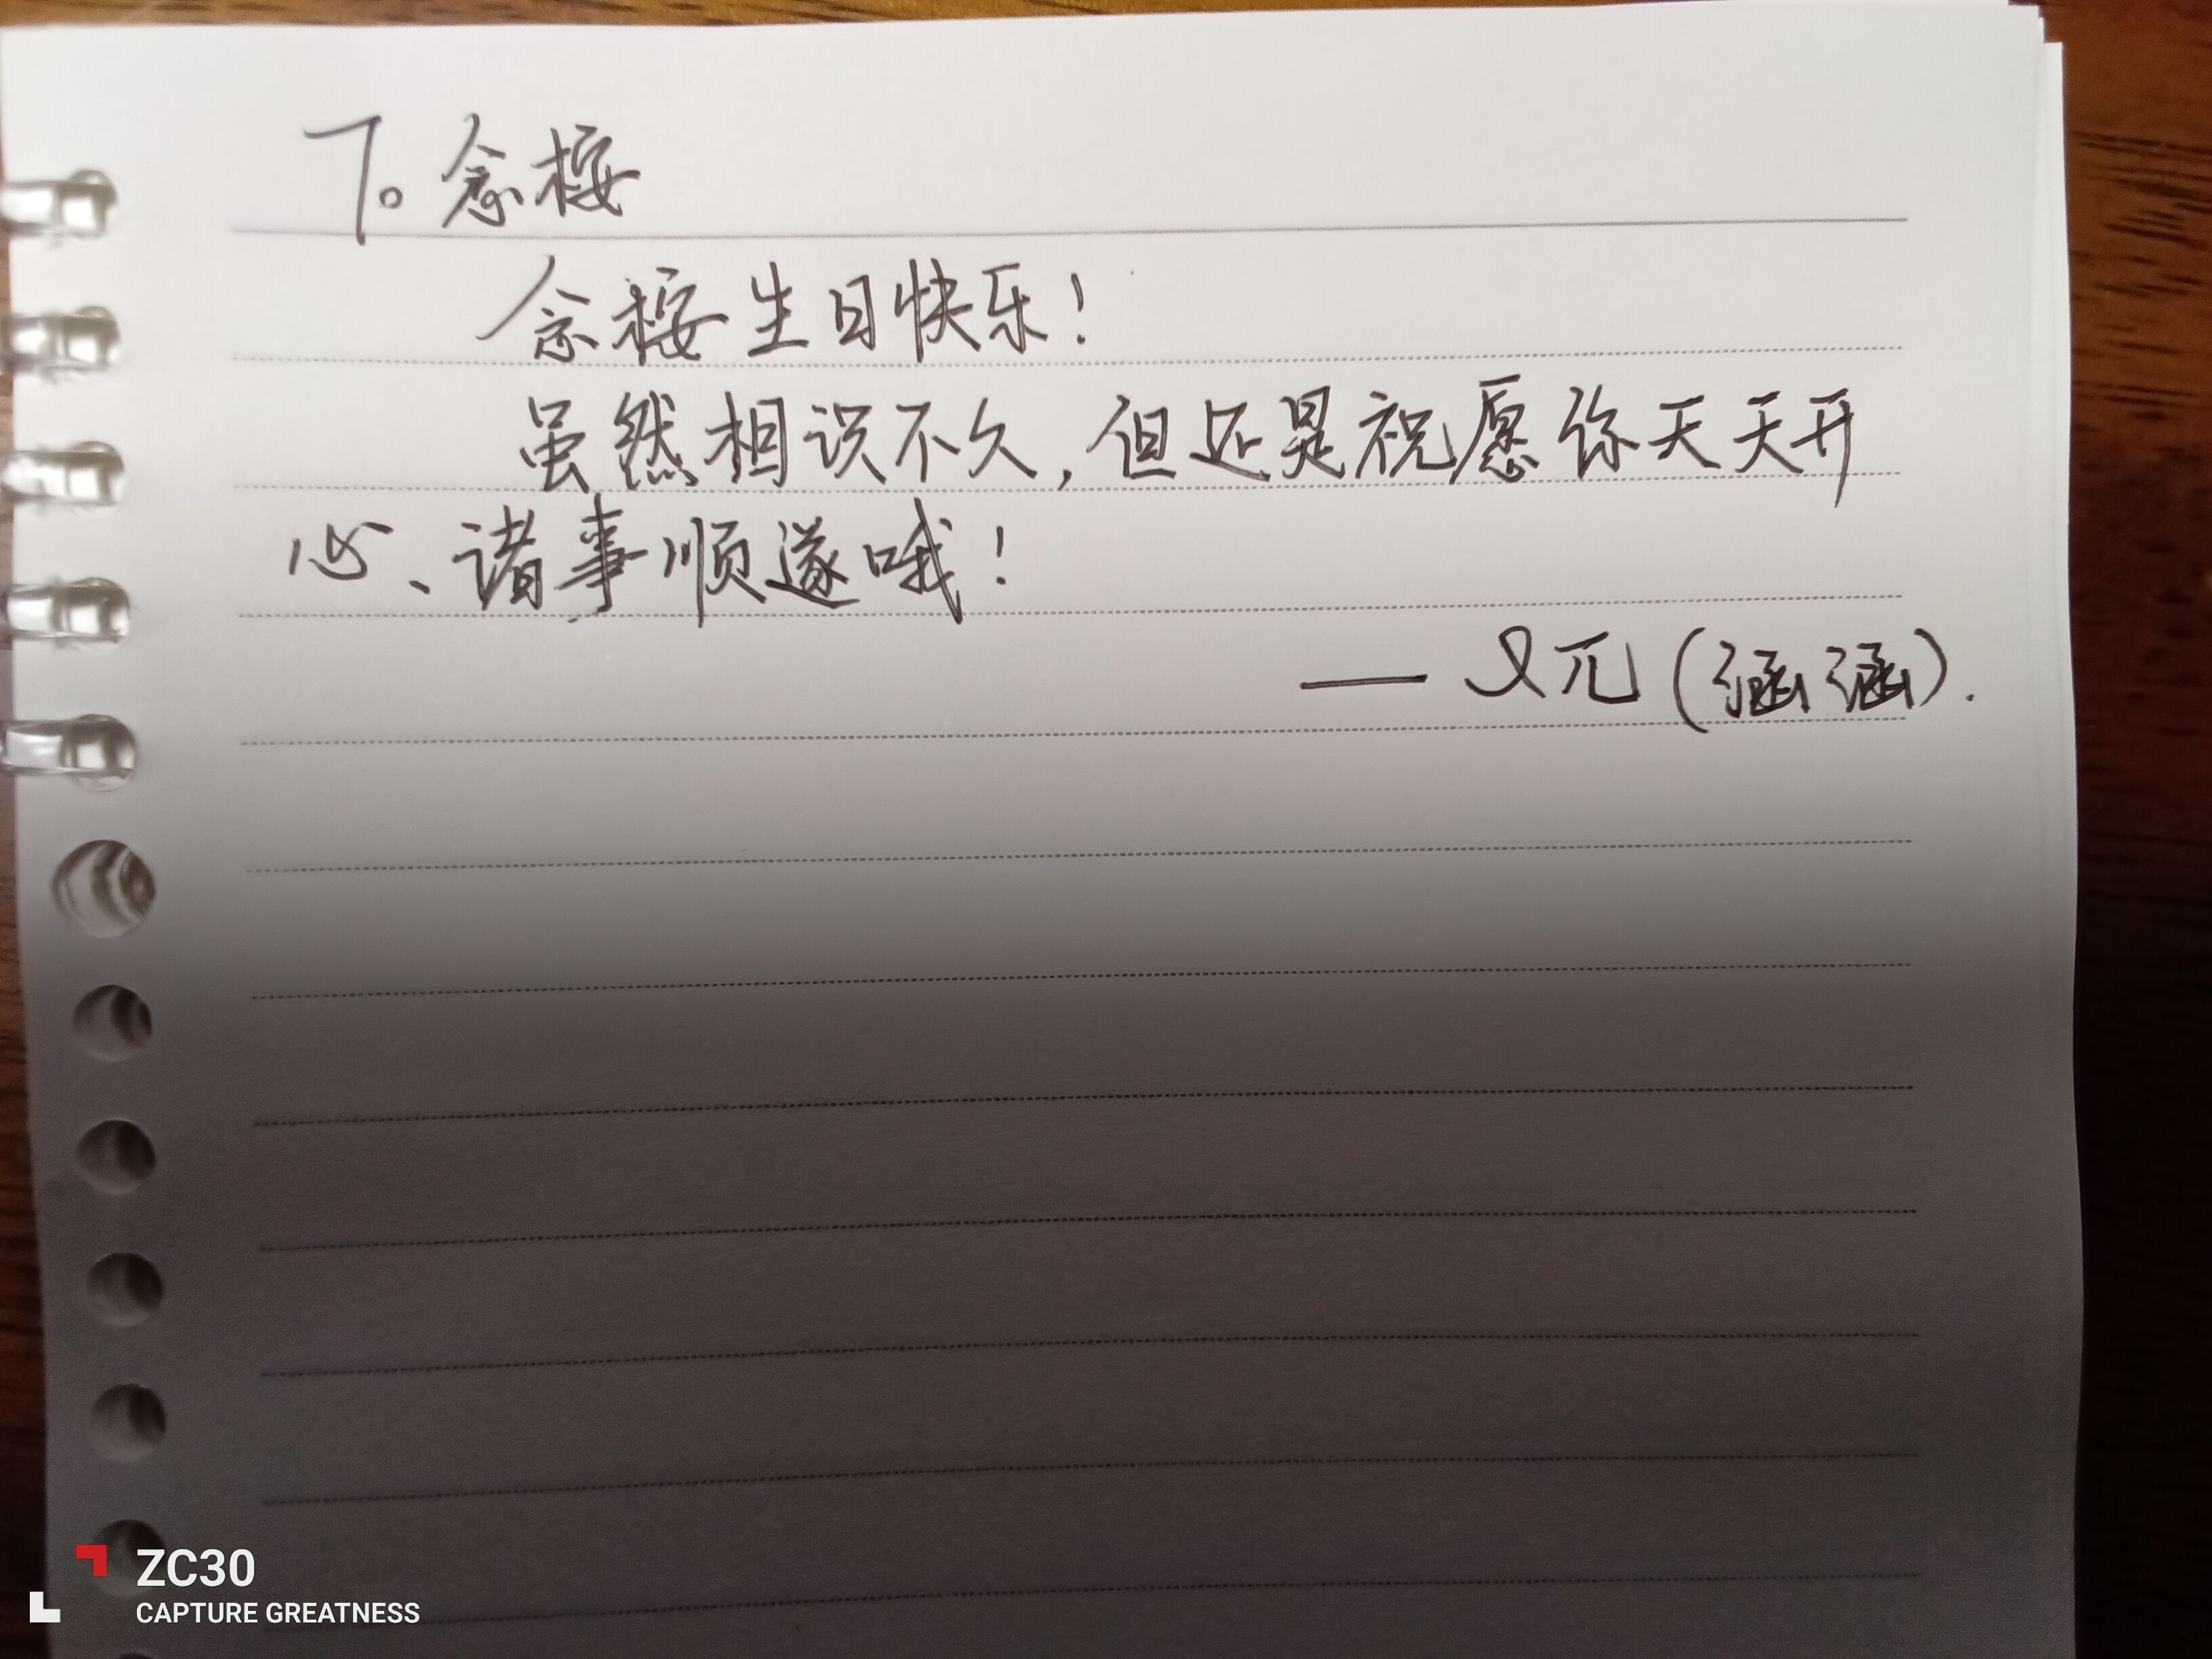 To 念桜
念桜生日快乐！
虽然相识不久，但还是祝愿你天天开
心、诸事顺遂哦！
— 又兀（涵涵）.
ZC30
CAPTURE GREATNESS